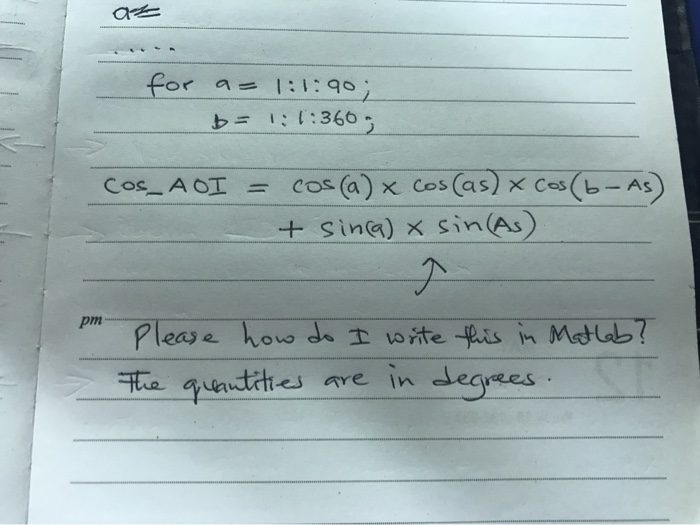 a=
.....
for a = 1:1:90;
b = 1:1:360;
Cos_AOI = cos(a) x cos(as) x cos(b-As)
+ sin(a) x sin(As)
pm
Please how do I write this in Matlab?
The quantities are in degrees.